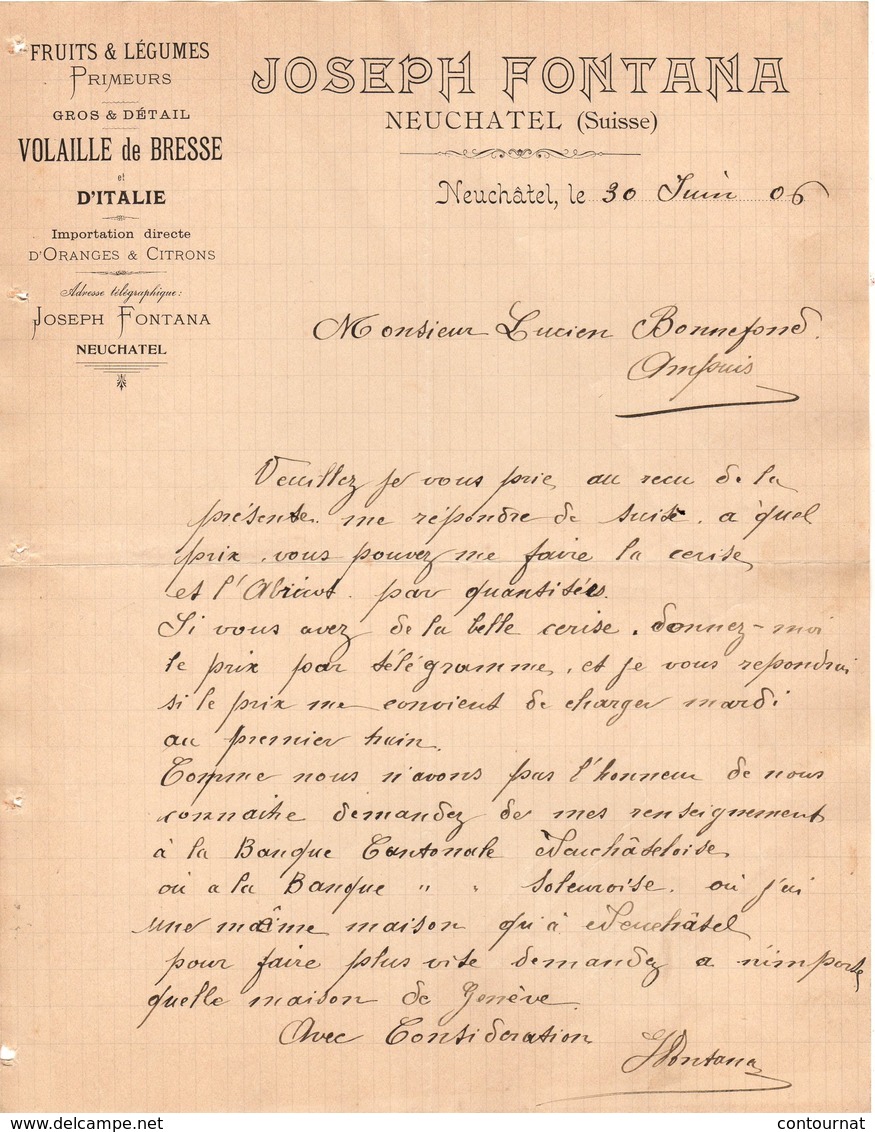 FRUITS & LÉGUMES
PRIMEURS
GROS & DÉTAIL
VOLAILLE de BRESSE
et
D'ITALIE
Importation directe
D'ORANGES & CITRONS
Adresse télégraphique:
JOSEPH FONTANA
NEUCHATEL
JOSEPH FONTANA
NEUCHATEL (Suisse)
Neuchâtel, le 30 Juin 06
Monsieur Lucien Bonnefond.
Ampuis
Veuillez je vous prie, au recu de la
présente. me répondre de suite. a quel
prix, vous pouvez me faire la cerise
et l'Abricot. par quantitées.
Si vous avez de la belle cerise. donnez-moi
le prix par télégramme, et je vous repondrai
si le prix me convient de charger mardi
au premier train.
Comme nous n'avons pas l'honneur de nous
connaitre demandez de mes renseignement
à la Banque Cantonale Neuchâteloise
où a la Banque " " Soleuroise. où j'ai
une même maison qu'à Neuchâtel
pour faire plus vite demandez a n'importe
quelle maison de Genève
Avec Consideration
JFontana
contournat